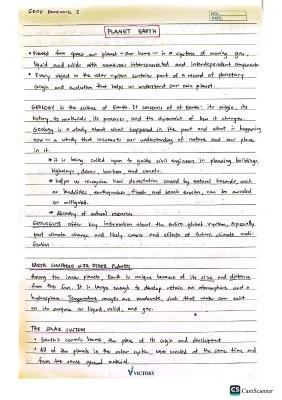 GEOS Homework 2
NO.:
DATE:
PLANET EARTH
• Viewed from space, our planet - our home - is a system of moving gas,
liquid and solids with numerous interconnected and interdependent components.
• Every object in the solar system contains part of a record of planetary
origin and evolution that helps us understand our own planet.
GEOLOGY is the science of Earth. It concerns all of Earth: its origin, its
history, its materials, its processes, and the dynamics of how it changes.
Geology is a study about what happened in the past and what is happening
now - a study that increases our understanding of nature and our place
in it.
* it is being called upon to guide civil engineers in planning buildings,
highways, dams, harbors, and canals.
* helps us recognize how devastation caused by natural hazards, such
as landslides, earthquakes, floods, and beach erosion, can be avoided
or mitigated.
* discovery of natural resources
GEOLOGISTS offer key information about the entire global system, especially
past climate change and likely causes and effects of future climate modi-
fication.
EARTH COMPARED WITH OTHER PLANETS
Among the inner planets, Earth is unique because of its size and distance
from the Sun. It is large enough to develop retain an atmosphere and a
hydrosphere. Temperature ranges are moderate, such that water can exist
on its surface as liquid, solid, and gas.
THE SOLAR SYSTEM
• Earth's cosmic home, the place of its origin and development
• All of the planets in the solar system, were created at the same time and
from the same general material.
VICTORY
CS CamScanner